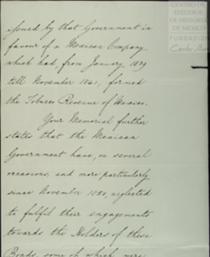 issued by that Government in
favour of a Mexican Company
which had, from January 1839
till November 1841, farmed
the Tobacco Revenue of Mexico.
Your Memorial further
states that the Mexican
Government have, on several
occasions, and more particularly
since November 1850, neglected
to fulfil their engagements
towards the Holders of these
Bonds, some of which were
CENTRO DE
ESTUDIOS
DE HISTORIA
DE MÉXICO
FUNDACIÓN
Carlos Slim